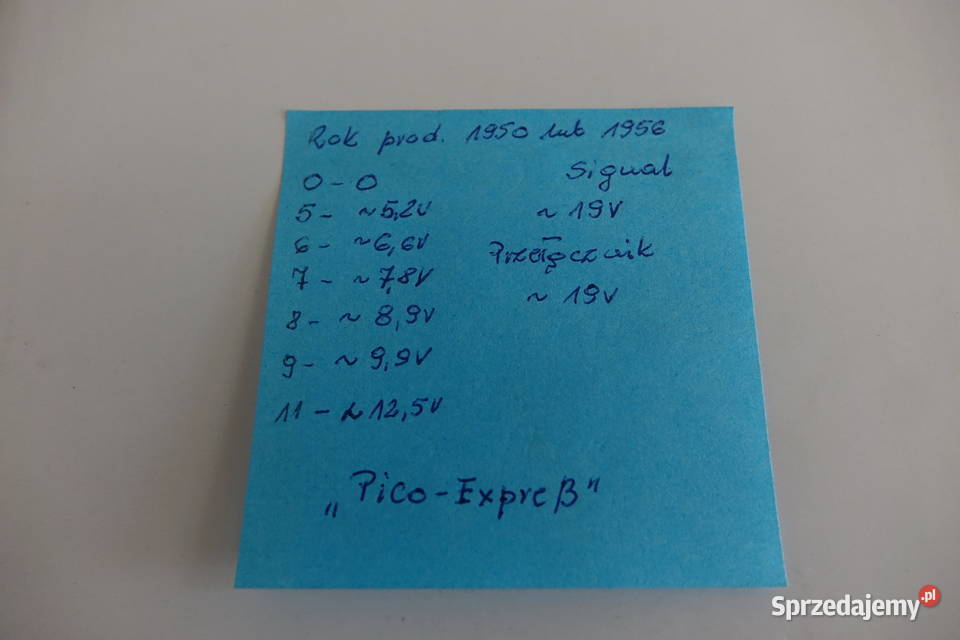 Rok prod. 1950 lub 1956
0 - 0
5 - ~5,2V
6 - ~6,6V
7 - ~7,8V
8 - ~ 8,9V
9 - ~ 9,9V
11 - ~12,5V
Signal
~ 19V
Przełącznik
~ 19V
„Pico-Expreß"
Sprzedajemy.pl